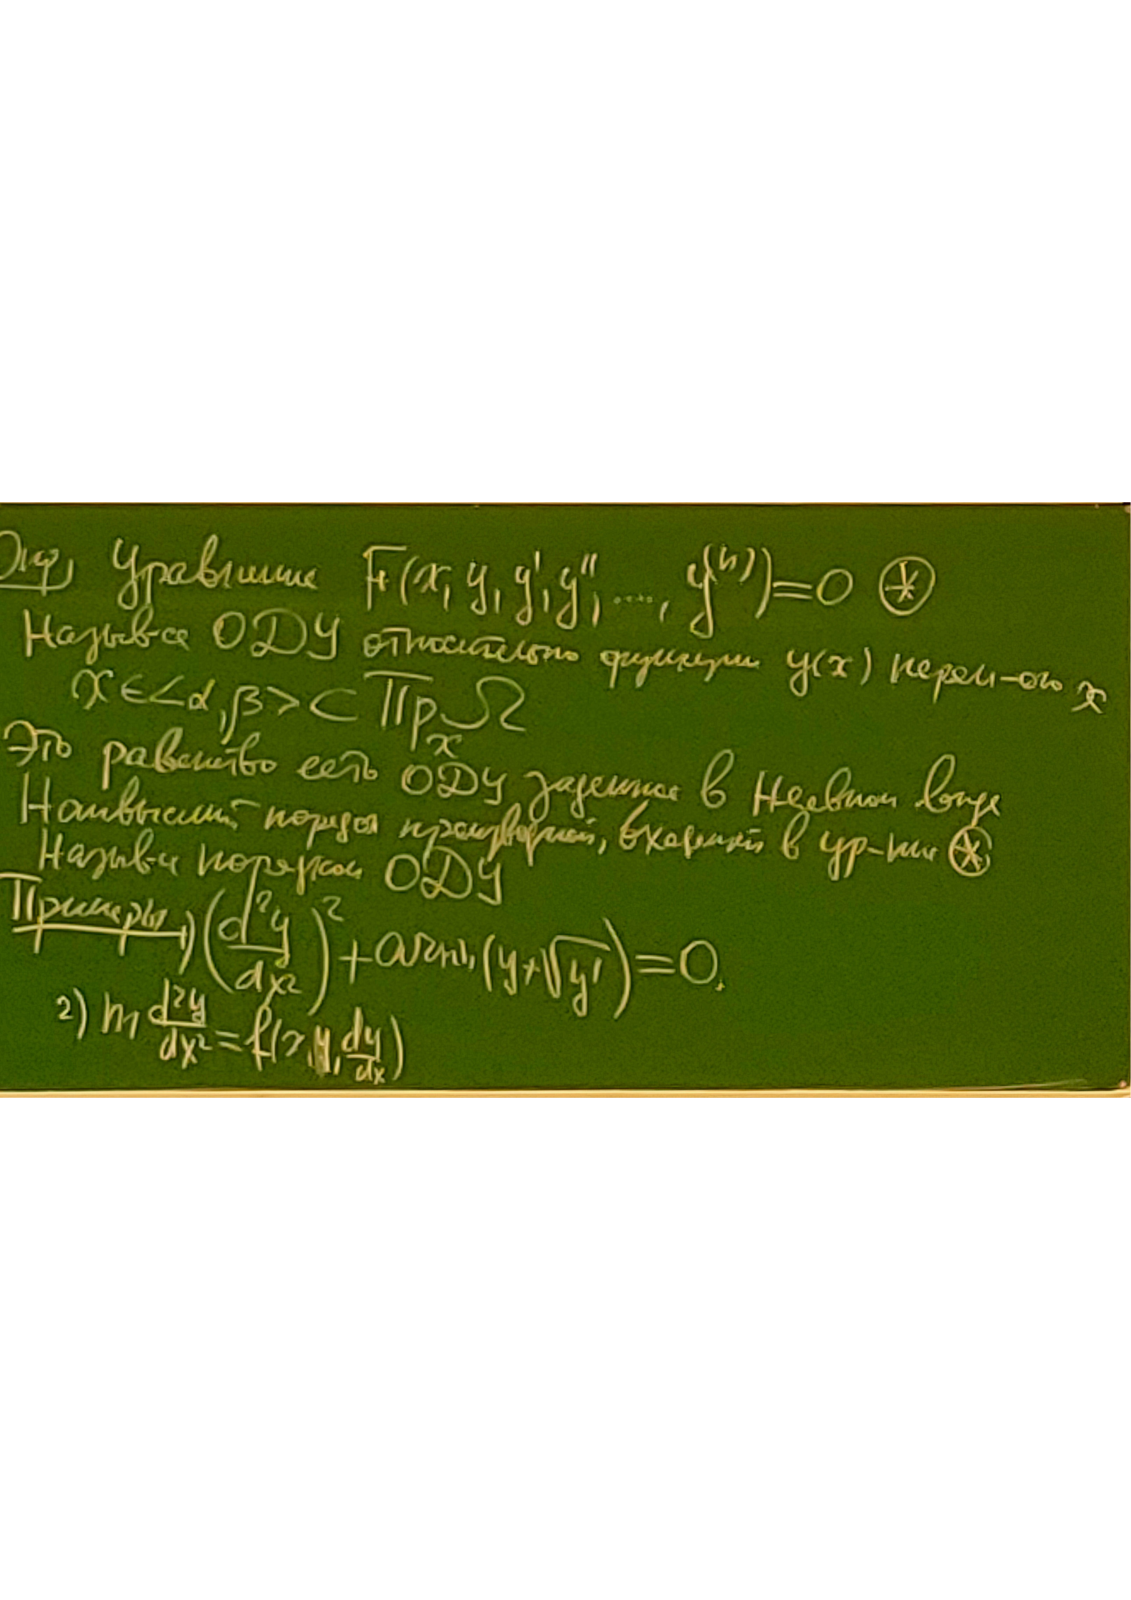 Опр, Уравнение F(x, y, y', y'', ...., y⁽ⁿ⁾)=0 ⊛
Назыв-ся ОДУ относительно функции y(x) перем-ого x
x ∈ <α, β> ⊂ Пр_x Ω
Это равенство есть ОДУ заданное в неявном виде
Наивысший порядок производной, входящей в ур-ние ⊛
Назыв-ся порядком ОДУ
Примеры 1) (d²y/dx²)² + (y+√y')=0.
2) m d²y/dx² = f(x, y, dy/dx)